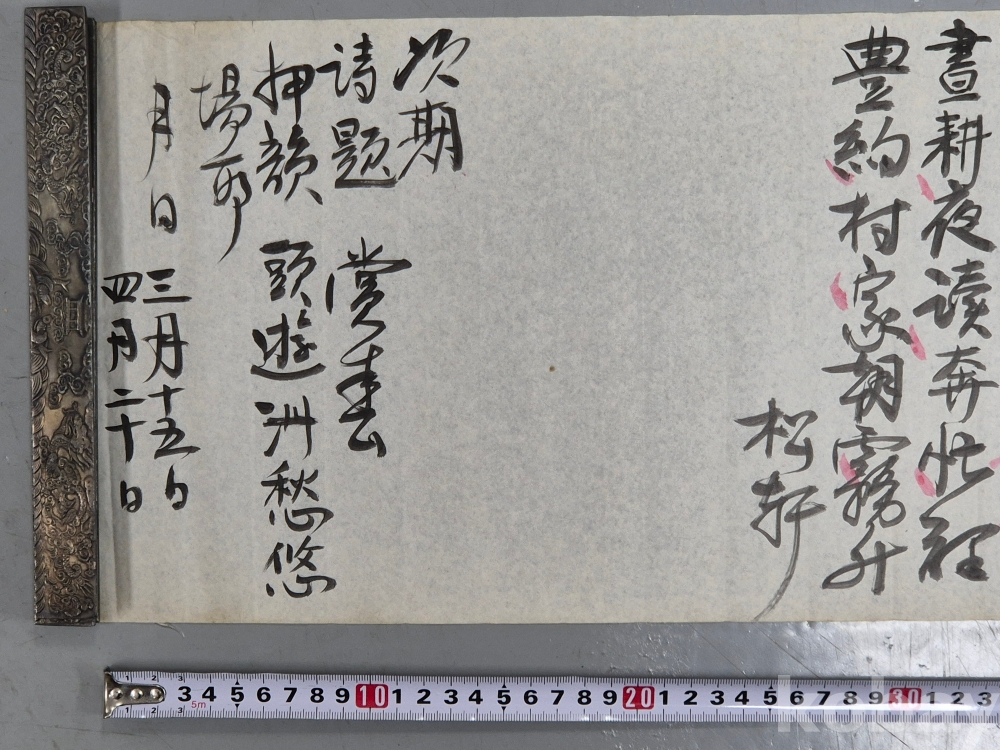 晝耕夜讀奔忙裡
豊約村家朝霧升
松軒
次期
詩題 賞春
押韻 頭遊洲愁悠
場所
月日 三月十五日
四月二十日
3 4 5 6 7 8 9 10 1 2 3 4 5 6 7 8 9 20 1 2 3 4 5 6 7 8 9 30 1 2 3
5m